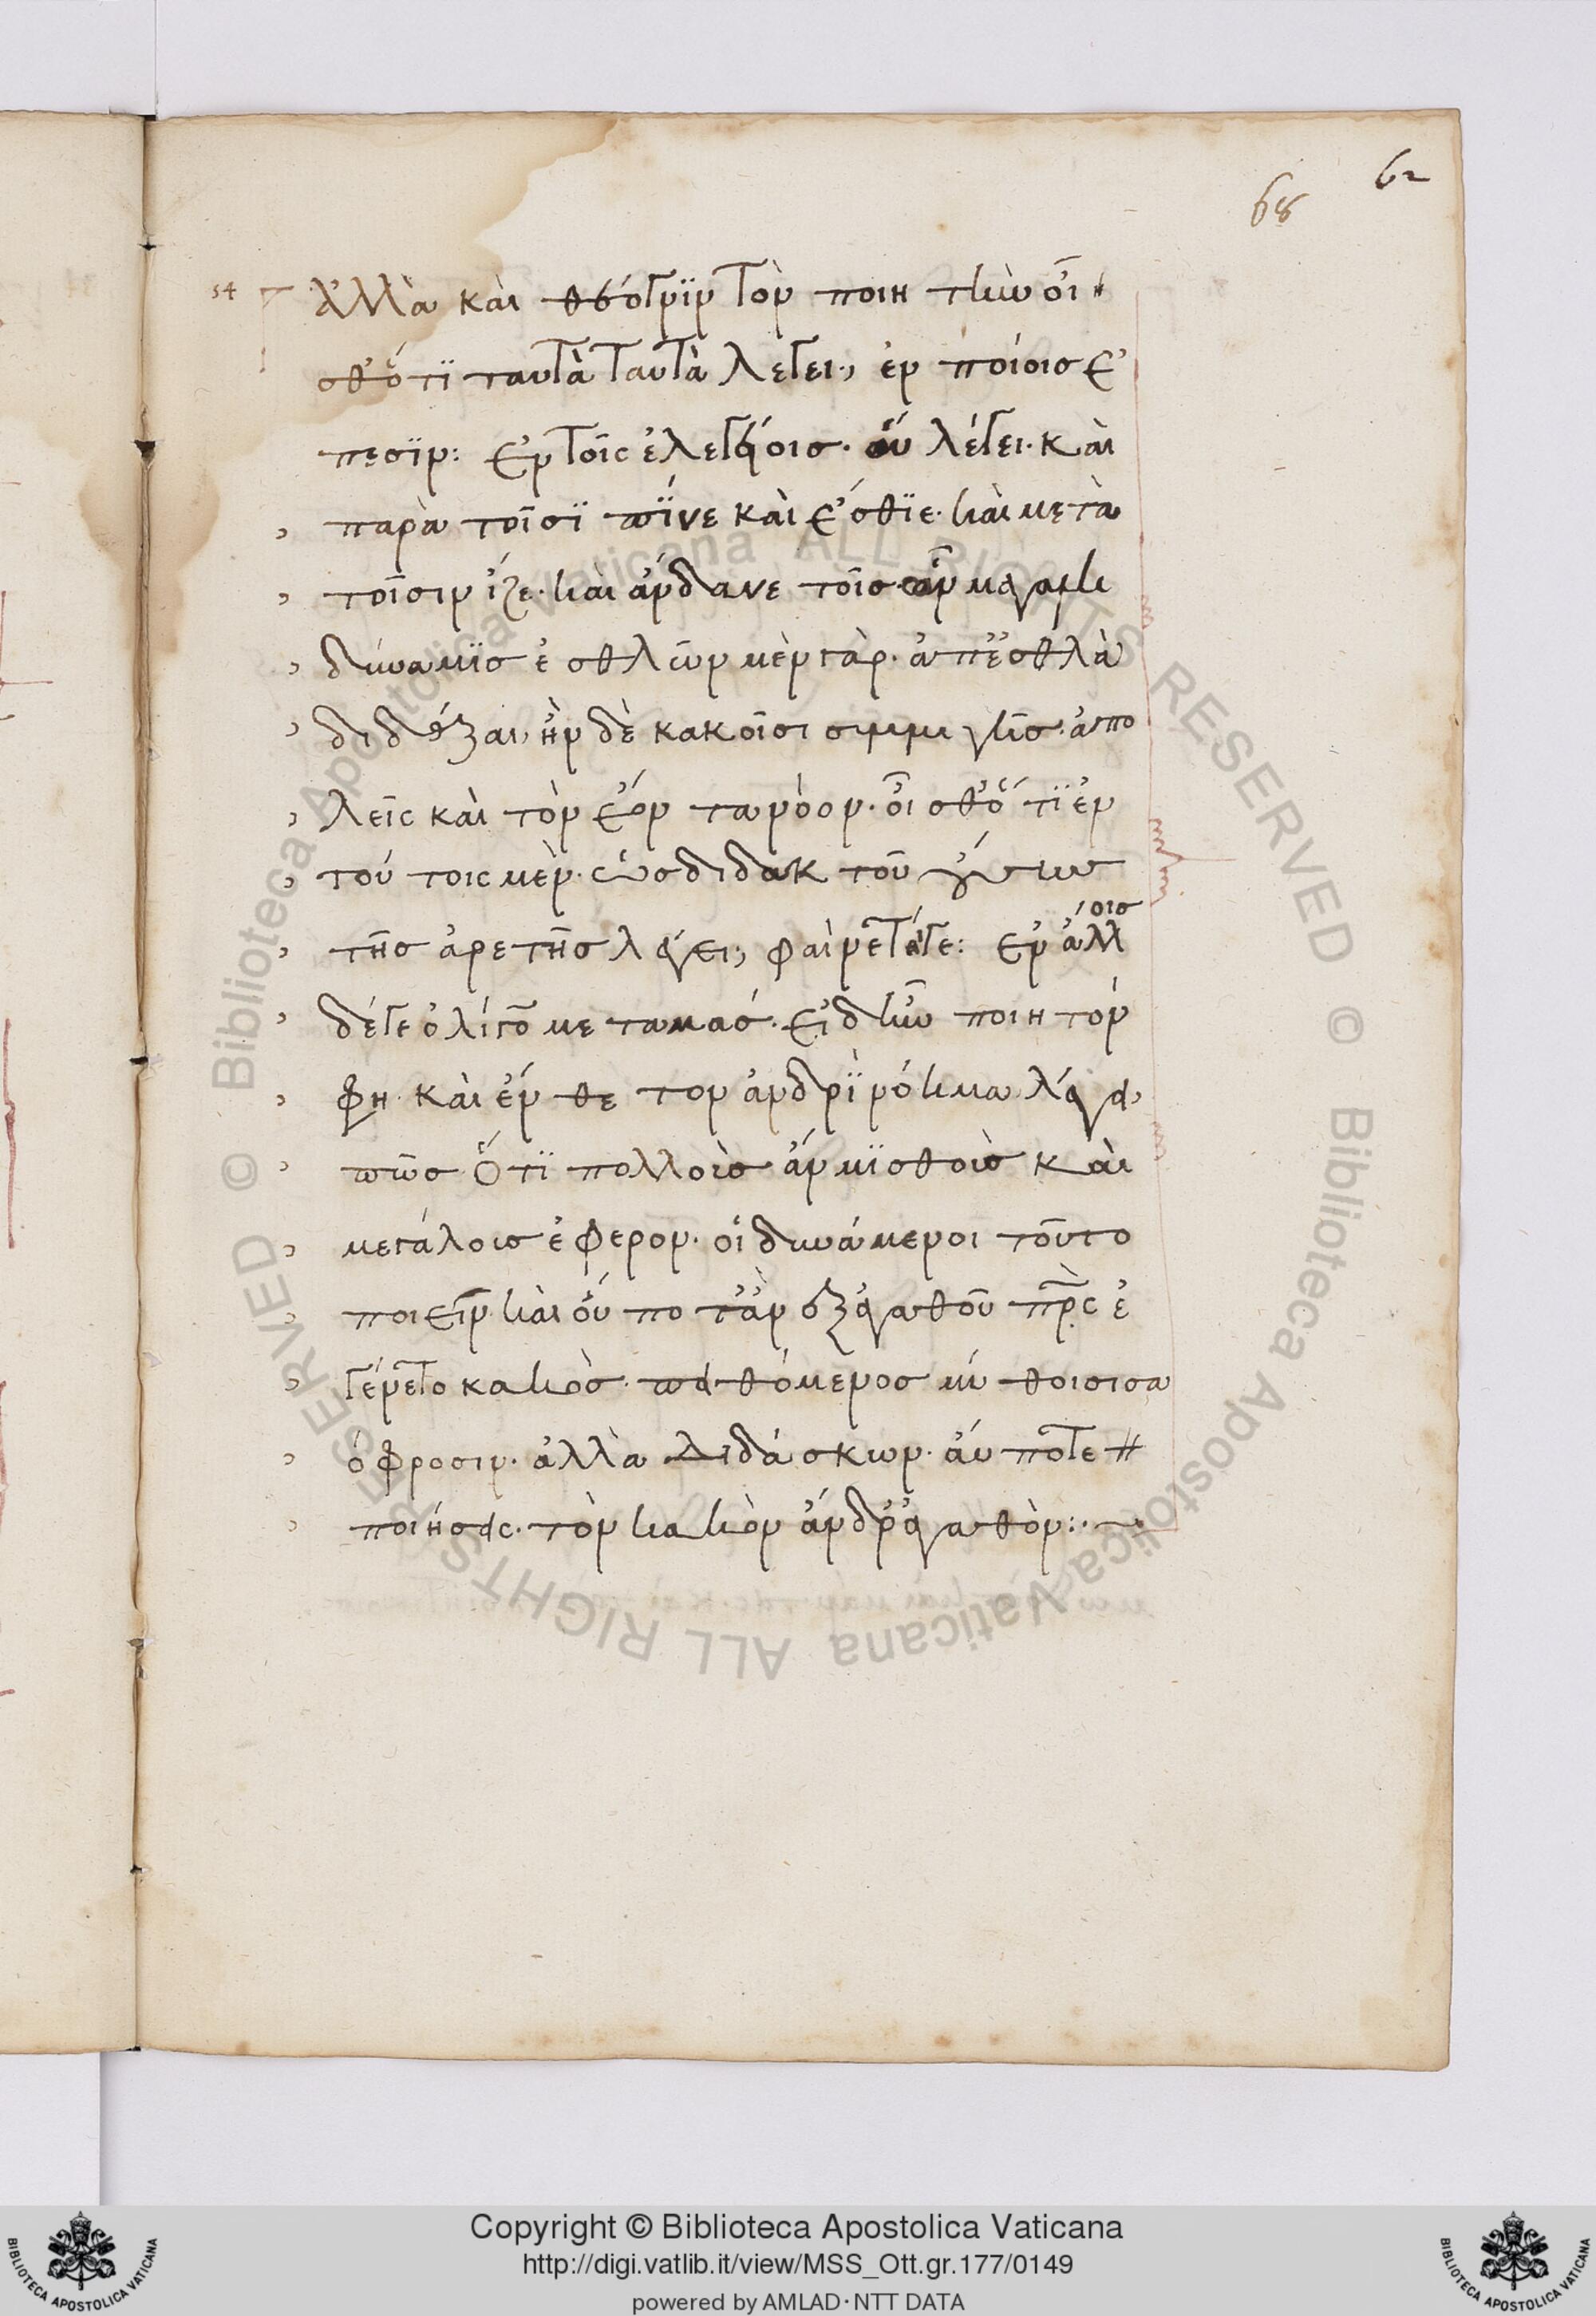 62
68
54 ἀλλὰ καὶ θέογνϊν τὸν ποιητὴν οἶ
σθ' ὅτϊ ταυτὰ ταυτὰ λέγει; ἐν ποίοις ἔ
πεσϊν: Ἐν τοῖς ἐλεγείοις. οὗ λέγει. καὶ
παρὰ τοῖσϊ πῖνε καὶ ἔσθϊε. καὶ μετὰ
τοῖσιν ἵζε. καὶ ἅνδανε τοῖς ὧν μεγάλη
δύναμϊς ἐσθλῶν μὲν γὰρ. ἄπ' ἐσθλὰ
διδάξαι, ἢν δὲ κακοῖσι συμμιγῆς. ἀπο
λεῖς καὶ τὸν ἐόν τα νόον. οἶσθ' ὅτϊ ἐν
τούτοις μὲν. ὡς διδακτοῦ οὔσης
τῆς ἀρετῆς λέγει; φαίνεταί γε: Ἐν ἄλλοις
δέ γε ὀλίγον μεταμάς. εἰ δ' ἦν ποιητόν
φη. καὶ ἔνθετον ἀνδρὶ νόημα λέγει,
πῶς ὅτϊ πολλοὺς ἂν μϊσθοὺς καὶ
μεγάλους ἔφερον. οἱ δυνάμενοι τοῦτο
ποιεῖν. καὶ οὔποτ' ἂν ἐξ ἀγαθοῦ πατρὸς ἐ
γένετο κακὸς. πειθόμενος μύθοισι σα
όφροσιν. ἀλλὰ διδάσκων. οὔποτε
ποιήσεις. τὸν κακὸν ἄνδρ' ἀγαθὸν:.
© Biblioteca Apostolica Vaticana ALL RIGHTS RESERVED © Biblioteca Apostolica Vaticana ALL RIGHTS RESERVED
Copyright © Biblioteca Apostolica Vaticana
http://digi.vatlib.it/view/MSS_Ott.gr.177/0149
powered by AMLAD·NTT DATA
BIBLIOTECA APOSTOLICA VATICANA
BIBLIOTECA APOSTOLICA VATICANA